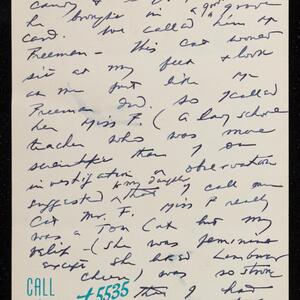 candy &
he brought in a good grove
card. We called him Mr
Freeman – This cat would
sit at my feet & look
at me just like Mr
Freeman did. so I called
her Miss F. (a lay school
teacher who was more
scientific than I on
investigation or observation
suggested to my daughter that I call my
Cat Mr. F. Miss F really
was a Tom Cat but my
belief (she was feminine
except she liked Limburger
cheese) was so strong
that I had
CALL
#5535